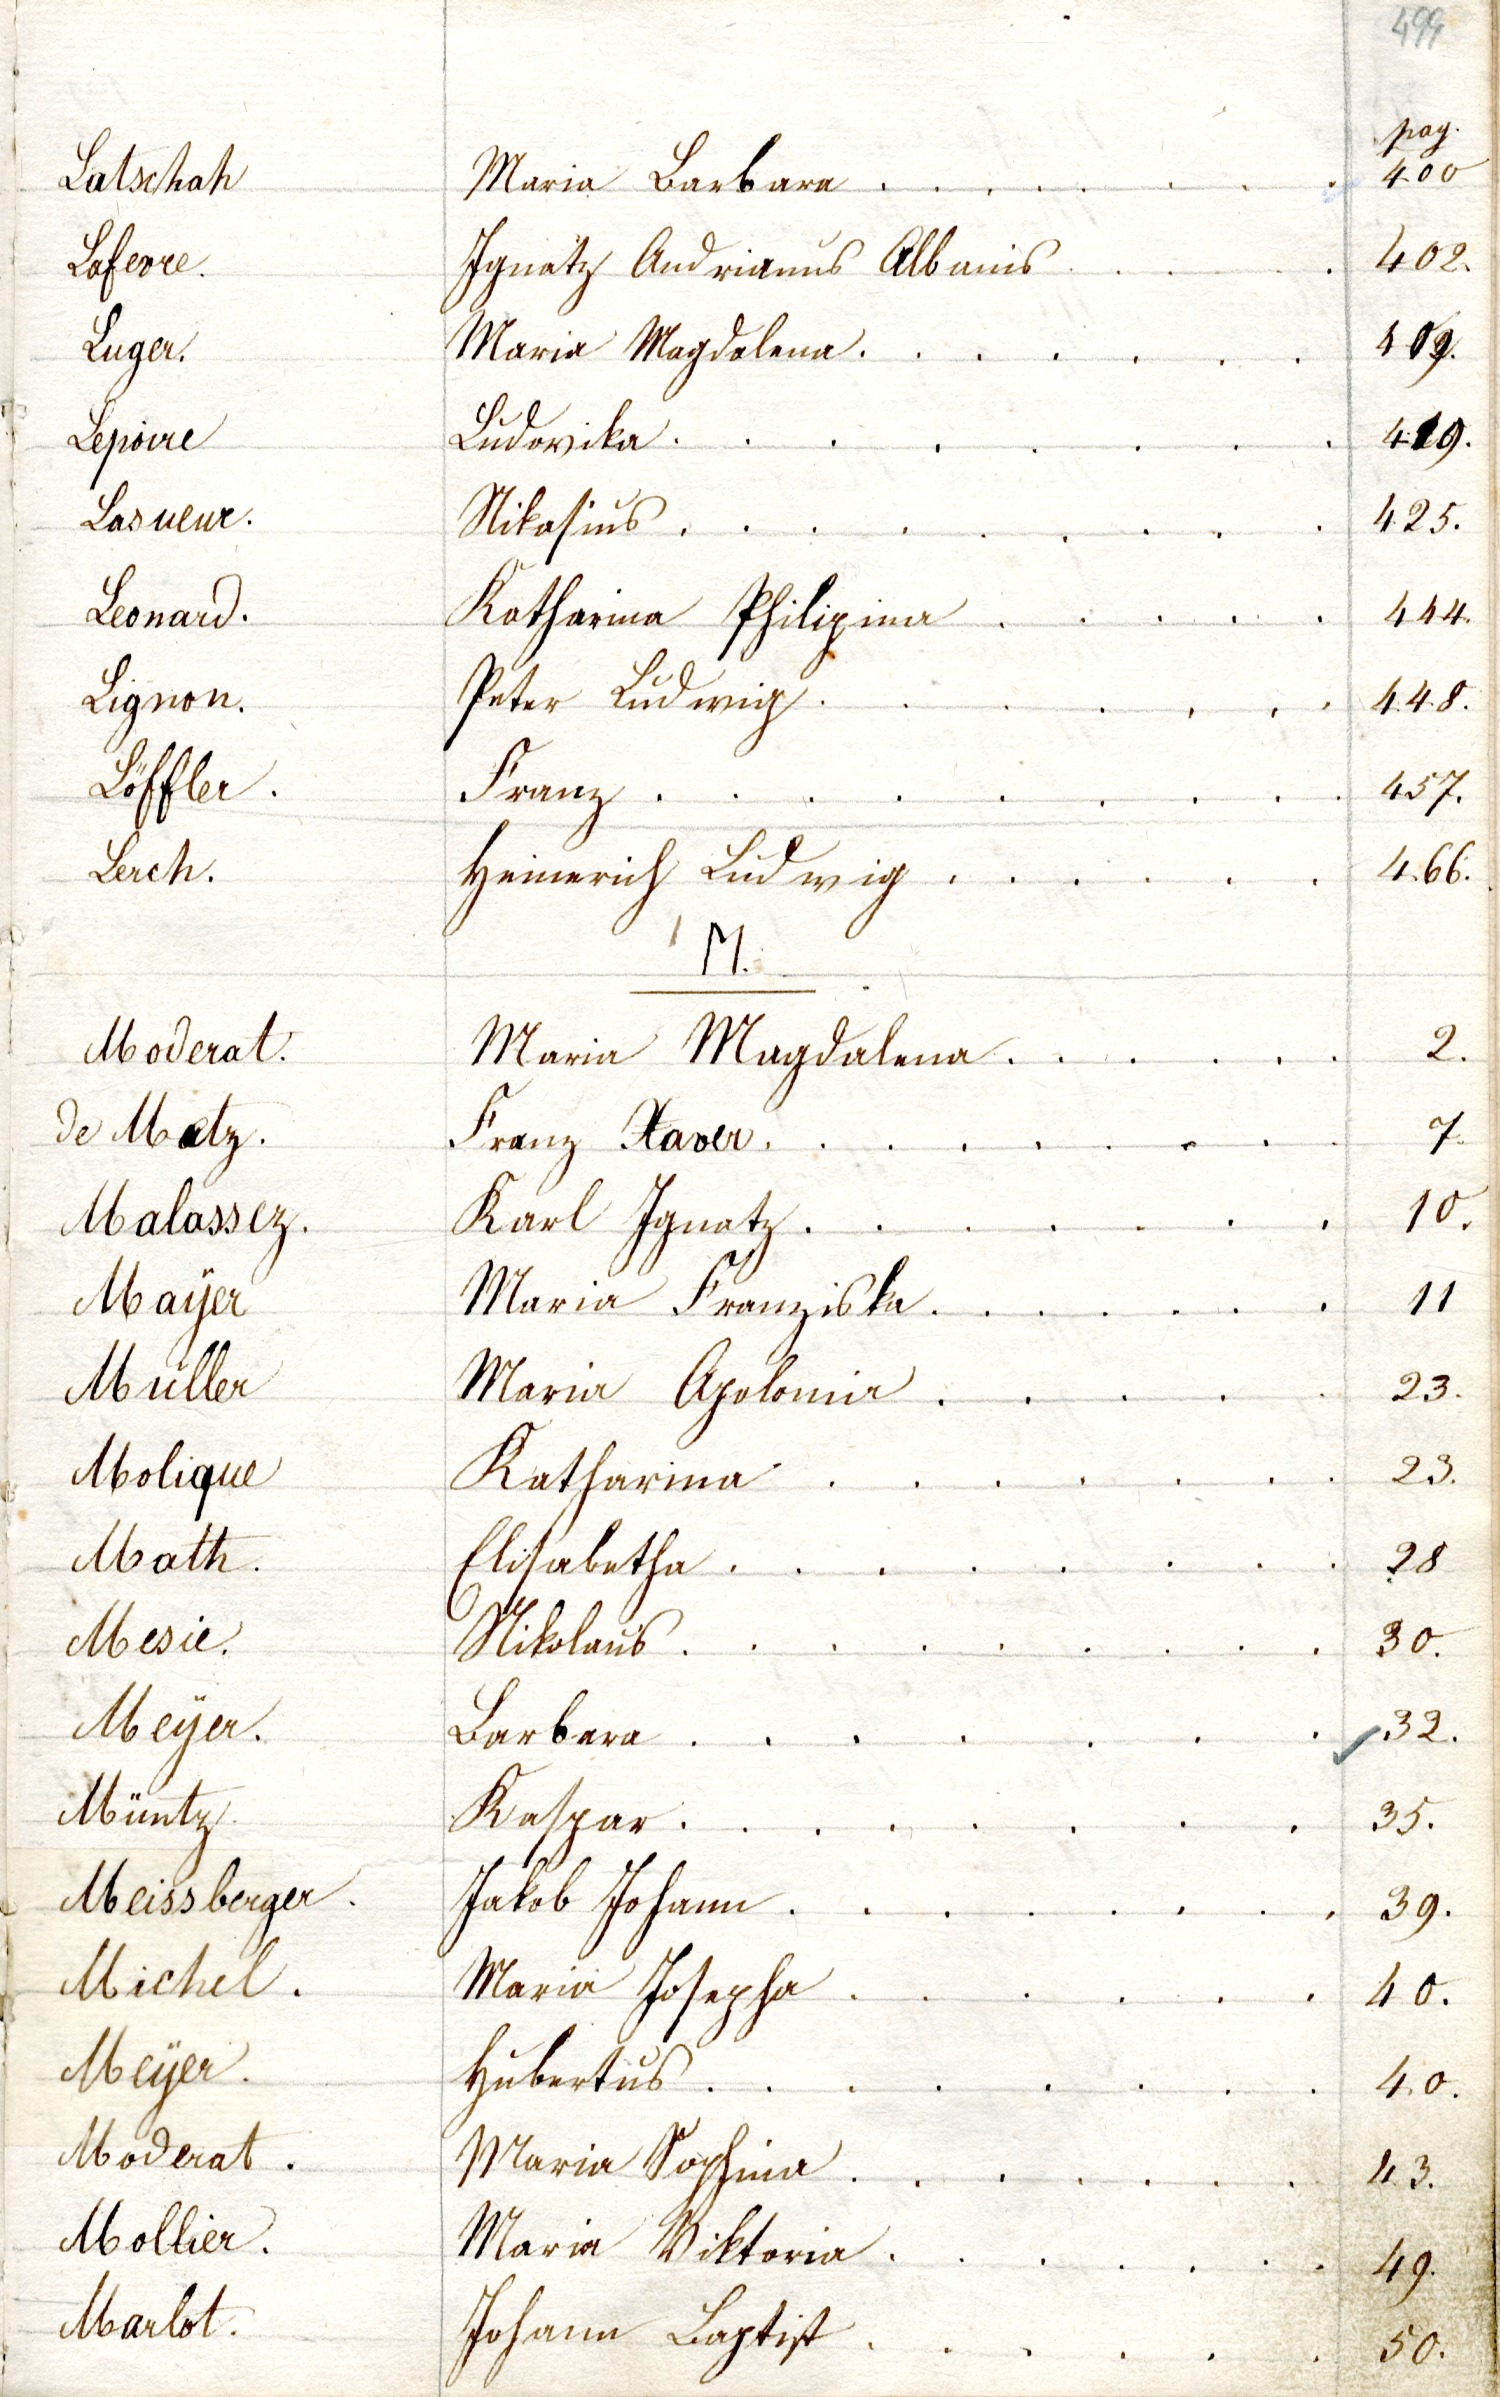 499
pag.
Latschah Maria Barbara . . . . . . . 400
Lafevre. Ignatz Andrianus Albanis . . . . 402.
Luger. Maria Magdalena . . . . . . . 409.
Lepoire Ludovika . . . . . . . . 419.
Lasueur. Nikasius . . . . . . . . 425.
Leonard. Katharina Philipina . . . . . 444.
Lignon. Peter Ludwig . . . . . . . 448.
Löffler. Franz . . . . . . . . . 457.
Lerch. Heinerich Ludwig . . . . . . 466.
M.
Moderat. Maria Magdalena . . . . . . 2.
de Metz. Franz Xaver . . . . . . . . 7.
Malassez. Karl Ignatz . . . . . . . 10.
Mayer Maria Franziska . . . . . . 11
Müller Maria Apolonia . . . . . 23.
Molique Katharina . . . . . . . 23.
Math. Elisabetha . . . . . . . 28
Mesie. Nikolaus . . . . . . . . 30.
Meyer. Barbara . . . . . . . 32.
Müntz Kaspar . . . . . . . . 35.
Meissberger. Jakob Johann . . . . . . . . 39.
Michel. Maria Josepha . . . . . . 40.
Meyer. Hubertus . . . . . . . . 40.
Moderat. Maria Sophina . . . . . . . 43.
Mollier. Maria Viktoria . . . . . . 49.
Marlot. Johann Baptist . . . . . . 50.